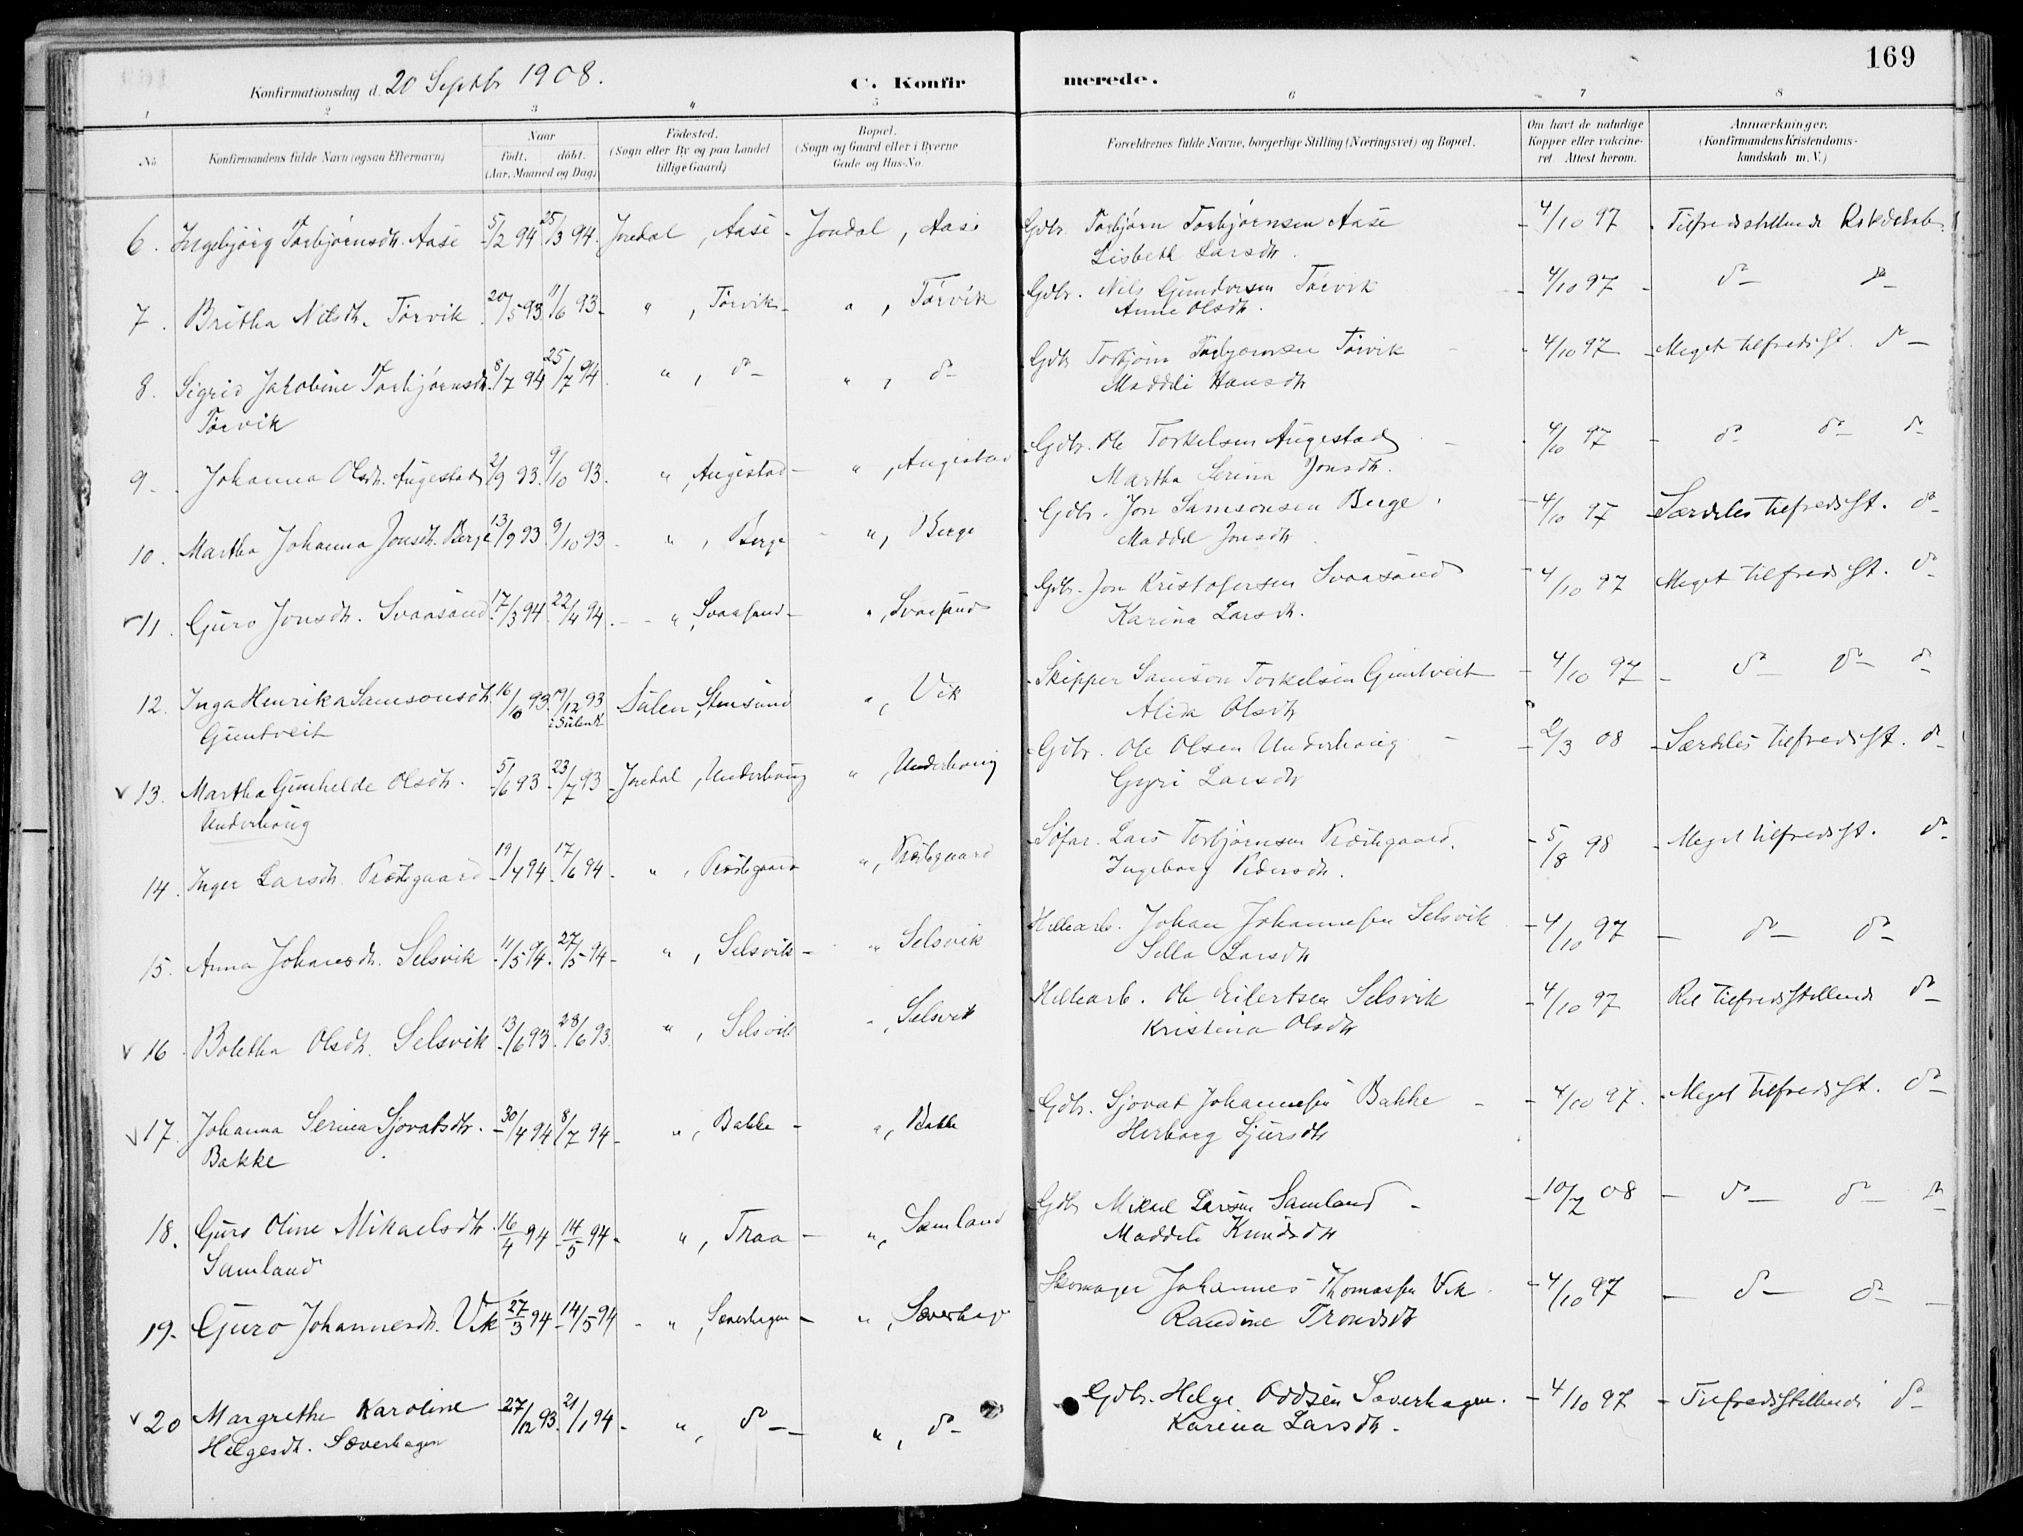 169
Konfirmationsdag d. 20 Septbr 1908. C. Konfirmerede.
1 2 3 4 5 6 7 8
No Konfirmandens fulde Navn (ogsaa Efternavn) Naar født. døbt. (Aar, Maaned og Dag) Fødested. (Sogn eller By og paa Landet tillige Gaard) Bopæl. (Sogn og Gaard eller i Byerne Gade og Hus-No. Forældrenes fulde Navne, borgerlige Stilling (Næringsvei) og Bopæl. Om havt de naturlige Kopper eller vakcineret. Attest herom. Anmærkninger. (Konfirmandens Kristendomskundskab m. V.)
6. Ingebjörg Torbjørnsdt. Aase 5/2 94 25/3 94. Jondal, Aase - Jondal, Aase Gdbr. Torbjørn Torbjørnsen Aase - 4/10 97 - Tilfredsstillende
Lisbeth Larsdtr.
7. Britha Nilsdtr. Torvik 20/5 93 11/6 93 - ", Torvik - ", Torvik Gdbr. Nils Gundersen Torvik - 4/10 97 - do - do
Anna Olsdtr.
8. Sigrid Jakobine Torbjørnsdtr. 8/7 94 25/7 94. ", do - ", do - Gdbr Torbjørn Torbjørnsen Torvik - 4/10 97 - Meget tilfredsst. do -
Torvik Maddeli Hansdtr
9. Johanna Olsdtr. Augestad 2/9 93. 9/10 93. ", Augestad - ", Augestad Gdbr. Ole Torkelsen Augestad - 4/10 97 - do do - do
Martha Serina Jonsdtr.
10. Martha Johanna Jonsdtr. Berge 13/9 93 9/10 93 - ", Berge - ", Berge Gdbr. Jon Samsonsen Berge - 4/10 97 - Særdeles tilfredsst. do -
Maddel Jonsdtr
11. Guro Jonsdtr. Svaasand 17/3 94 22/4 94. - ", Svaasand - ", Svaasand Gdbr. Jon Kristofersen Svaasand - 4/10 97 Meget tilfredsst. do -
Karina Larsdtr.
12. Inga Henrika Samsonsdtr. 16/10 93 19/12 93 i Sulen K Sulen, Stensund ", Vik Skipper Samson Torkelsen Guntveit - 4/10 97 - do - do - do -
Guntveit Alida Olsdtr
13. Martha Gunhelde Olsdtr. 5/6 93 23/7 93 - Jondal, Underhaug ", Underhaug Gdbr. Ole Olsen Underhaug - 2/3 08 - Særdeles tilfredsst. do -
Underhaug Gyri Larsdtr
14. Inger Larsdtr. Prestegaard 19/4 94 17/6 94 - ", Prestegaard ", Prestegaard Lars Torbjørnsen Prestegaard. - 5/8 98 - Meget tilfredsst. do -
Ingeborg Pedersdtr.
15. Anna Johansdtr. Selsvik 11/5 94. 27/5 94 - ", Selsvik - " Selsvik Hellearb. Johan Johannessen Selsvik - 4/10 97 - do - do -
Sella Larsdtr
16. Boletha Olsdtr. Selsvik 13/6 93. 28/6 93. ", Selsvik ", Selsvik Hellearb. Ole Eilertsen Selsvik - 4/10 97 Ret tilfredsstillende do -
Kristina Olsdtr
17. Johanna Serina Sjovatsdtr. - 30/4 94 8/7 94 - ", Bakke - ", Bakke Gdbr. Sjovat Johannessen Bakke - 4/10 97. - Meget tilfredsst. do -
Bakke Herborg Sjursdtr
18. Guro Oline Mikaelsdtr. 16/4 94 14/5 94 - ", Traa - ", Samland Gdbr Mikael Larsen Samland - 10/7 08 - do - do - do
Samland Maddeli Knudsdtr
19. Guro Johannesdtr. Vik 27/3 94 14/5 94 - ", Sæverhagen - ", Sæverhag Skomager Johannes Thomassen Vik - 4/10 97 - do - do -
Randine Trondsdtr
20 Margrethe Karoline 27/12 93. 21/1 94 - ", do - ", do - Gdbr. Helge Oddsen Sæverhagen. - 4/10 97 - Tilfredsstillende do -
Helgesdtr. Sæverhagen Karina Larsdtr.